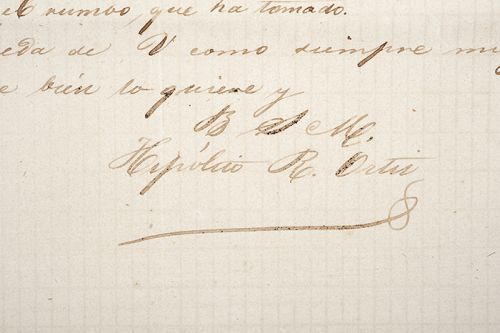 el rumbo, que ha tomado.
eda de V como siempre mi
e bien lo quiere y
B S M.
Hipólito R. Ortiz